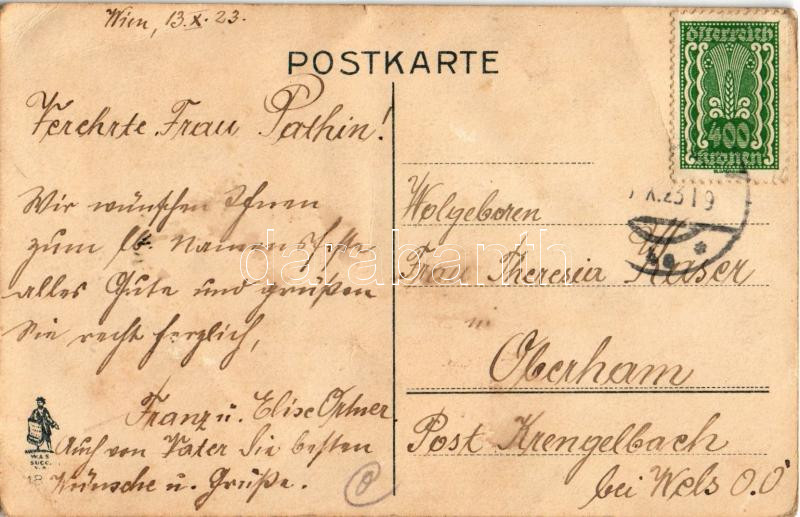 Wien, 13.X.23.
POSTKARTE
Österreich
400
Kronen
Verehrte Frau Pathin!
Wir wünschen Ihnen
zum lb. Namensfeste
alles Gute und grüßen
Sie recht herzlich,
Franz u. Elise Ortner
Auch von Vater die besten
Wünsche u. Grüße.
X.23 19
Wolgeboren
Frau Theresia
Oberham
Post Krengelbach
bei Wels O.Ö
W.& S.
SUCC.
darabanth